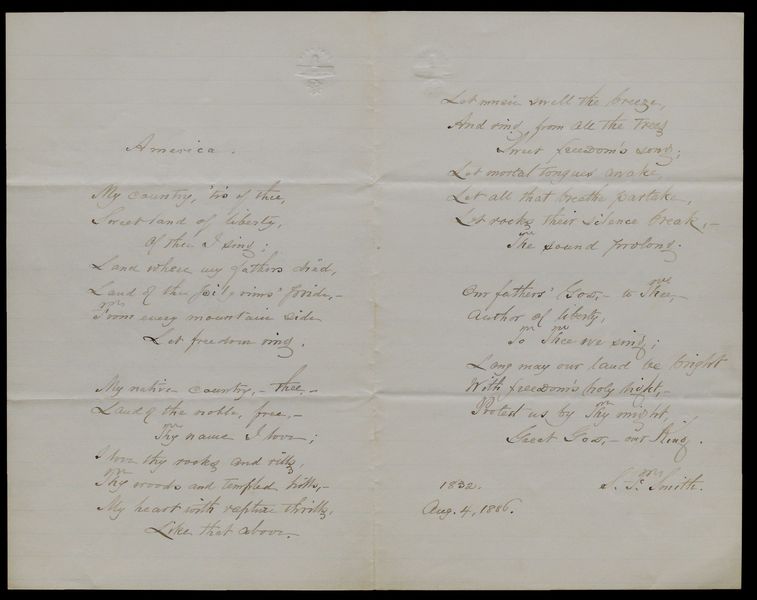 America.
My country, 'tis of thee,
Sweet land of liberty,
Of thee I sing;
Land where my fathers died,
Land of the pilgrims' pride,—
From every mountain side
Let freedom ring.
My native country,— thee,—
Land of the noble, free,—
Thy name I love;
I love thy rocks and rills,
Thy woods and templed hills,—
My heart with rapture thrills,
Like that above.
Let music swell the breeze,
And ring from all the trees
Sweet freedom's song;
Let mortal tongues awake,
Let all that breathe partake,
Let rocks their silence break,—
The sound prolong.
Our fathers' God,— to Thee,—
Author of liberty,
To Thee we sing;
Long may our land be bright
With freedom's holy light,—
Protect us by Thy might,
Great God,— our King.
S. F. Smith.
1832.
Aug. 4, 1886.